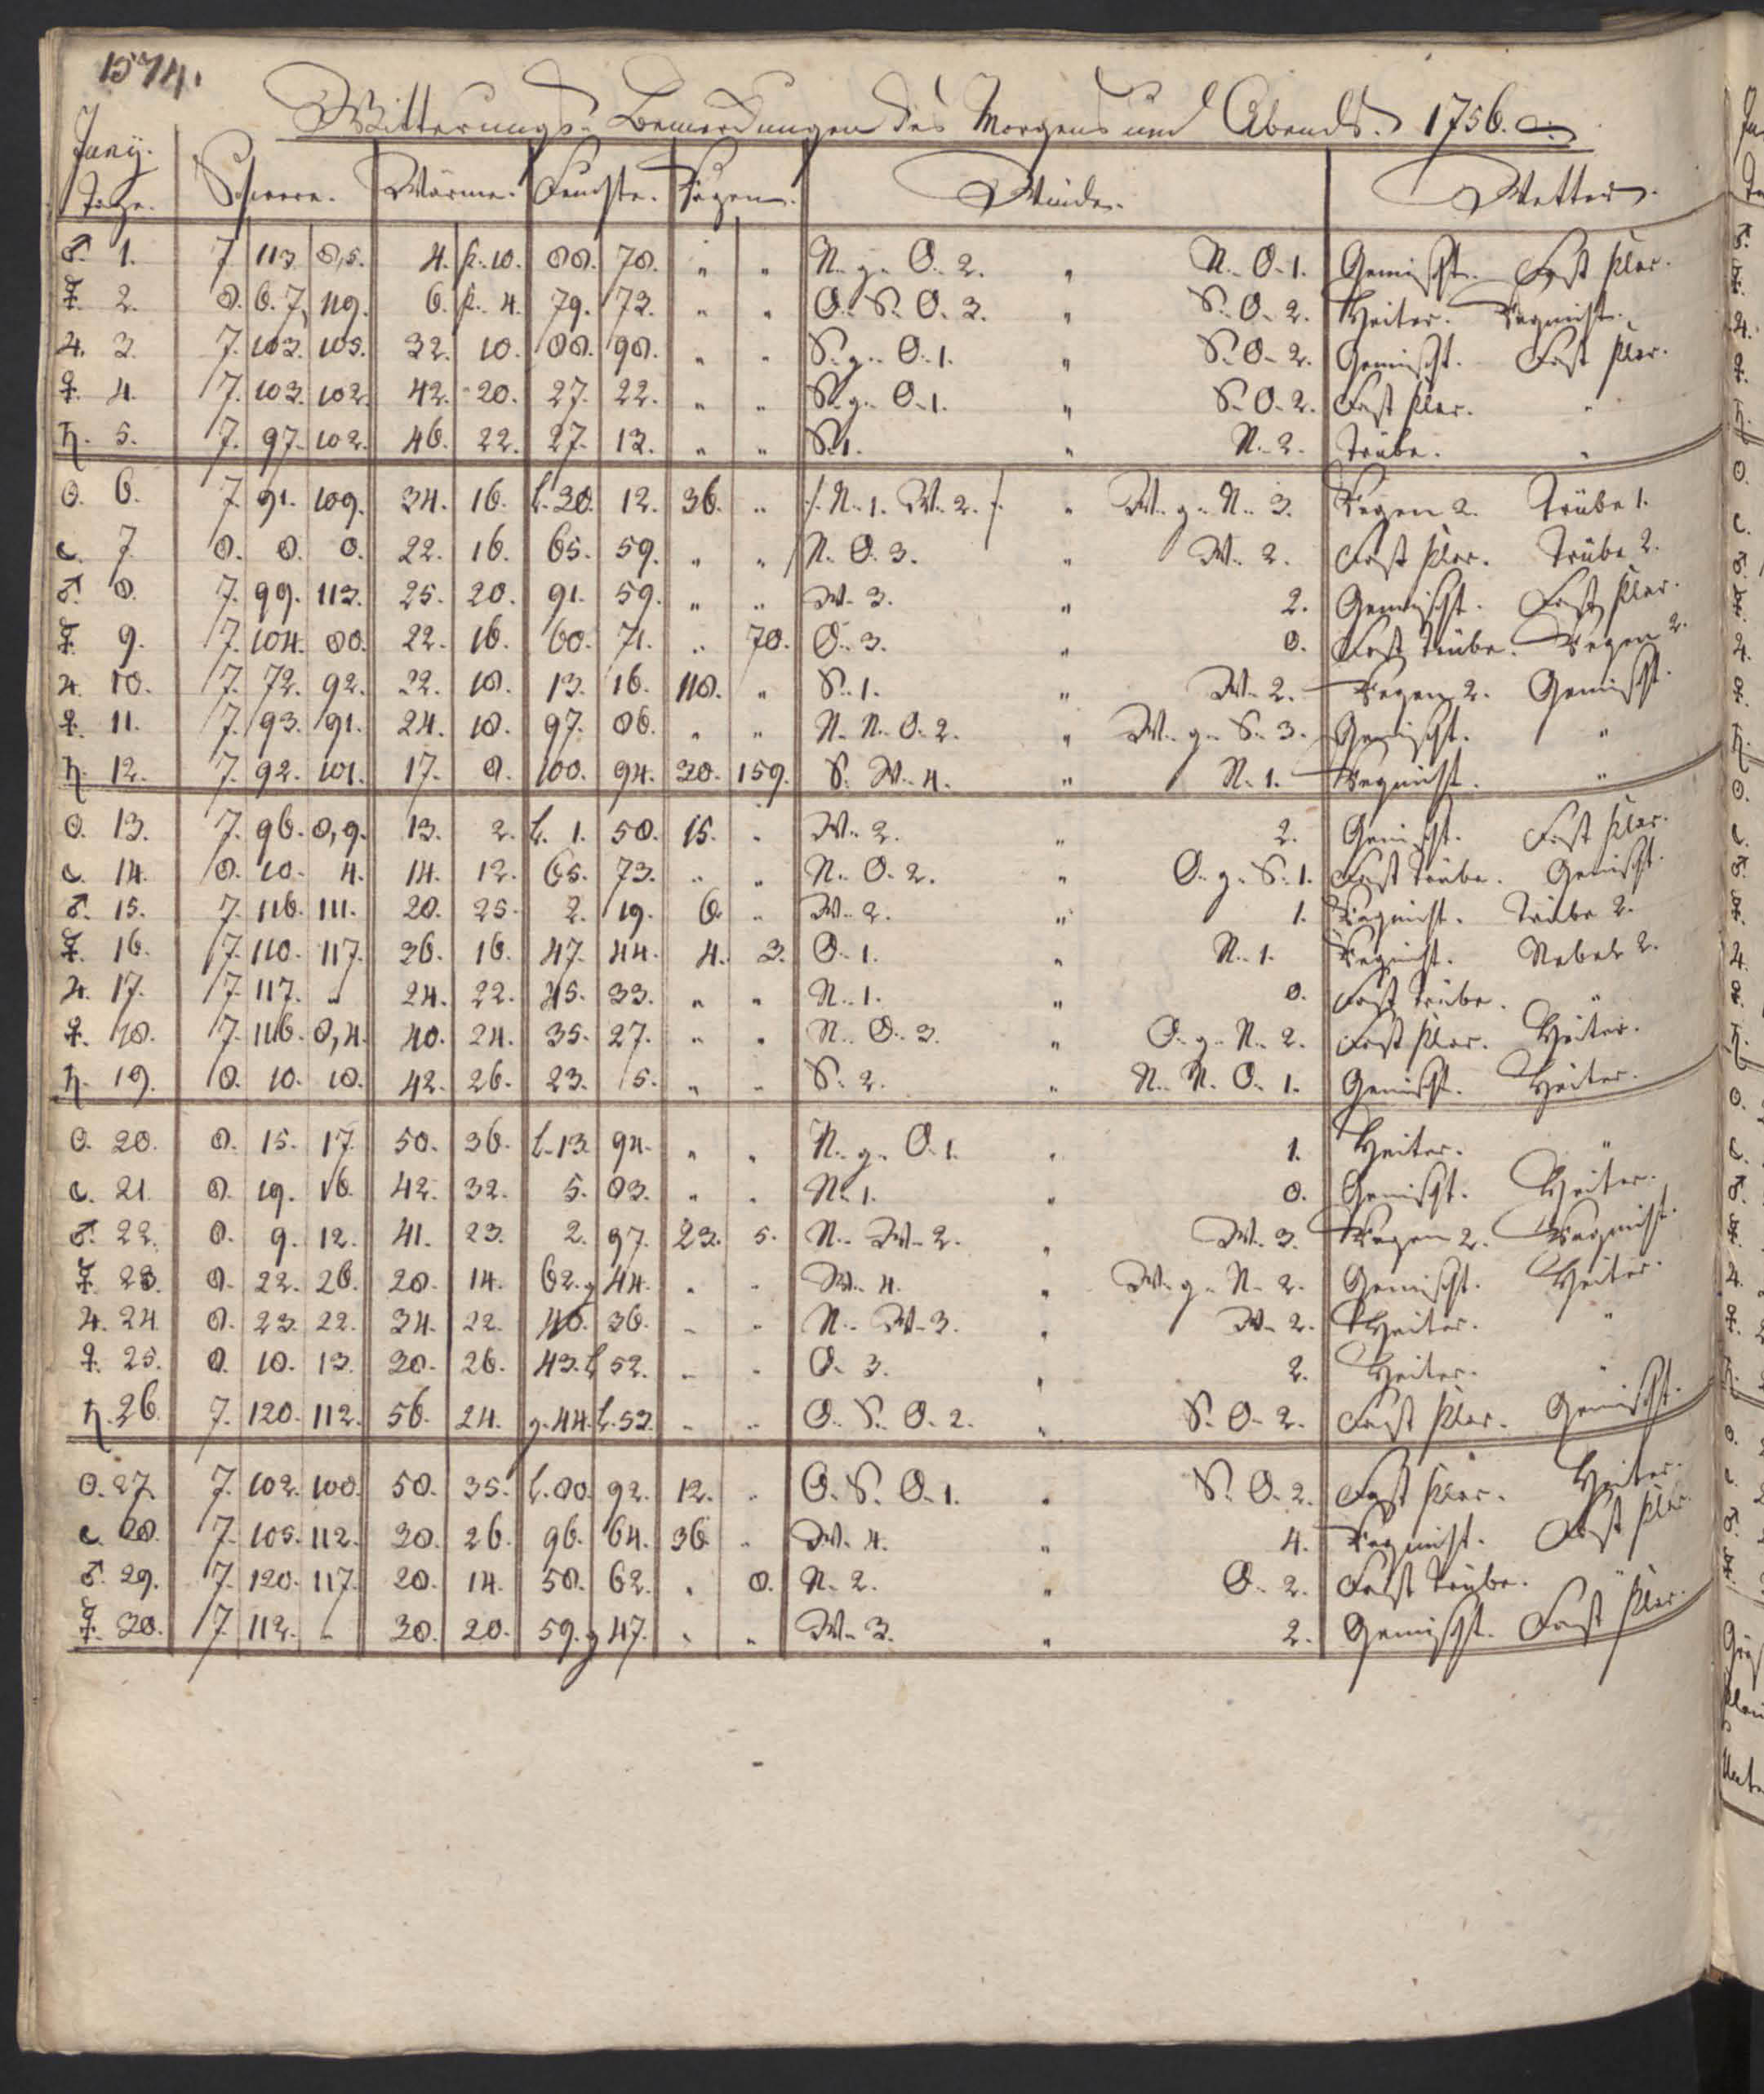 1574.
Witterungs-Bemerckungen des Morgens und Abends. 1756.
Juny. Tage. Schwere. Wärme. Feuchte. Regen. Winde. Wetter.
♂. 1. 7. 113. 8,5. 4. p. 10. 88. 78. " " N. g. O. 2. " N. O. 1. Gemischt. Fast klar.
☿. 2. 8. 6. 7, 119. 6. p. 4. 79. 73. " " O. S. O. 3. " S. O. 2. Heiter. Vermischt.
♃. 3. 7. 103. 105. 32. 10. 88. 98. " " S. g. O. 1. " S. O. 2. Gemischt. Fast klar.
♀. 4. 7. 103. 102. 42. 20. 27. 22. " " S. g. O. 1. " S. O. 2. Fast klar. "
♄. 5. 7. 97. 102. 46. 22. 27. 13. " " S. 1. " N. 2. Trübe. "
☉. 6. 7. 91. 109. 34. 16. l. 38. 12. 36. " /. N. 1. W. 2. /. " W. g. N. 3. Regen 2. Trübe 1.
☾. 7. 8. 8. 8. 22. 16. 65. 59. " " N. O. 3. " W. 2. Fast klar. Trübe 2.
♂. 8. 7. 99. 113. 25. 20. 91. 59. " " W. 3. " 2. Gemischt. Fast klar.
☿. 9. 7. 104. 88. 22. 16. 60. 71. " 70. O. 3. " 0. Fast trübe. Regen 2.
♃. 10. 7. 72. 92. 32. 18. 13. 16. 118. " S. 1. " W. 2. Regen 2. Gemischt.
♀. 11. 7. 93. 91. 24. 18. 97. 86. " " N. N. O. 2. " W. g. S. 3. Gemischt. "
♄. 12. 7. 92. 101. 17. 8. 100. 94. 30. 159. S. W. 4. " N. 1. "
☉. 13. 7. 96. 8,9. 13. 2. l. 1. 50. 15. " W. 2. " 2. Gemischt. Fast klar.
☾. 14. 8. 10. 4. 14. 12. 65. 73. " " N. O. 2. " O. g. S. 1. Fast trübe. Gemischt.
♂. 15. 7. 116. 111. 20. 25. 2. 19. 6. " W. 2. " 1. Trübe 2.
☿. 16. 7. 110. 117. 36. 16. 47. 44. 4. 3. O. 1. " N. 1. Nebel 2.
♃. 17. 7. 117. " 24. 22. 45. 33. " " N. 1. " 0. Fast trübe. "
♀. 18. 7. 116. 8,4. 40. 24. 35. 27. " " N. O. 3. " O. g. N. 2. Fast klar. Heiter.
♄. 19. 8. 10. 10. 42. 26. 23. 5. " " S. 2. " N. N. O. 1. Gemischt. Heiter.
☉. 20. 8. 15. 17. 50. 36. l. 13. 94. " " N. g. O. 1. " 1. Heiter. "
☾. 21. 8. 19. 16. 42. 32. 5. 83. " " N. 1. " 0. Gemischt. Heiter.
♂. 22. 8. 9. 12. 41. 23. 2. 97. 23. 5. N. W. 2. " W. 3. Regen 2.
☿. 23. 8. 22. 26. 28. 14. 62. g 44. " " W. 4. " W. g. N. 2. Gemischt. Heiter.
♃. 24. 8. 23. 22. 34. 22. 46. 36. " " N. W. 3. " W. 2. Heiter. "
♀. 25. 8. 10. 13. 30. 26. 43. l 52. " " O. 3. " 2. Heiter. "
♄. 26. 7. 120. 112. 56. 24. g. 44. l. 53. " " O. S. O. 2. " S. O. 2. Fast klar. Gemischt.
☉. 27. 7. 102. 100. 50. 35. l. 80. 92. 12. " O. S. O. 1. " S. O. 2. Fast klar. Heiter.
☾. 28. 7. 105. 112. 30. 26. 96. 64. 36. " W. 4. " 4. Fast klar.
♂. 29. 7. 120. 117. 20. 14. 58. 62. " 8. N. 2. " O. 2. Fast trübe. "
☿. 30. 7. 112. " 30. 20. 59. g 47. " " W. 3. " 2. Gemischt. Fast klar.